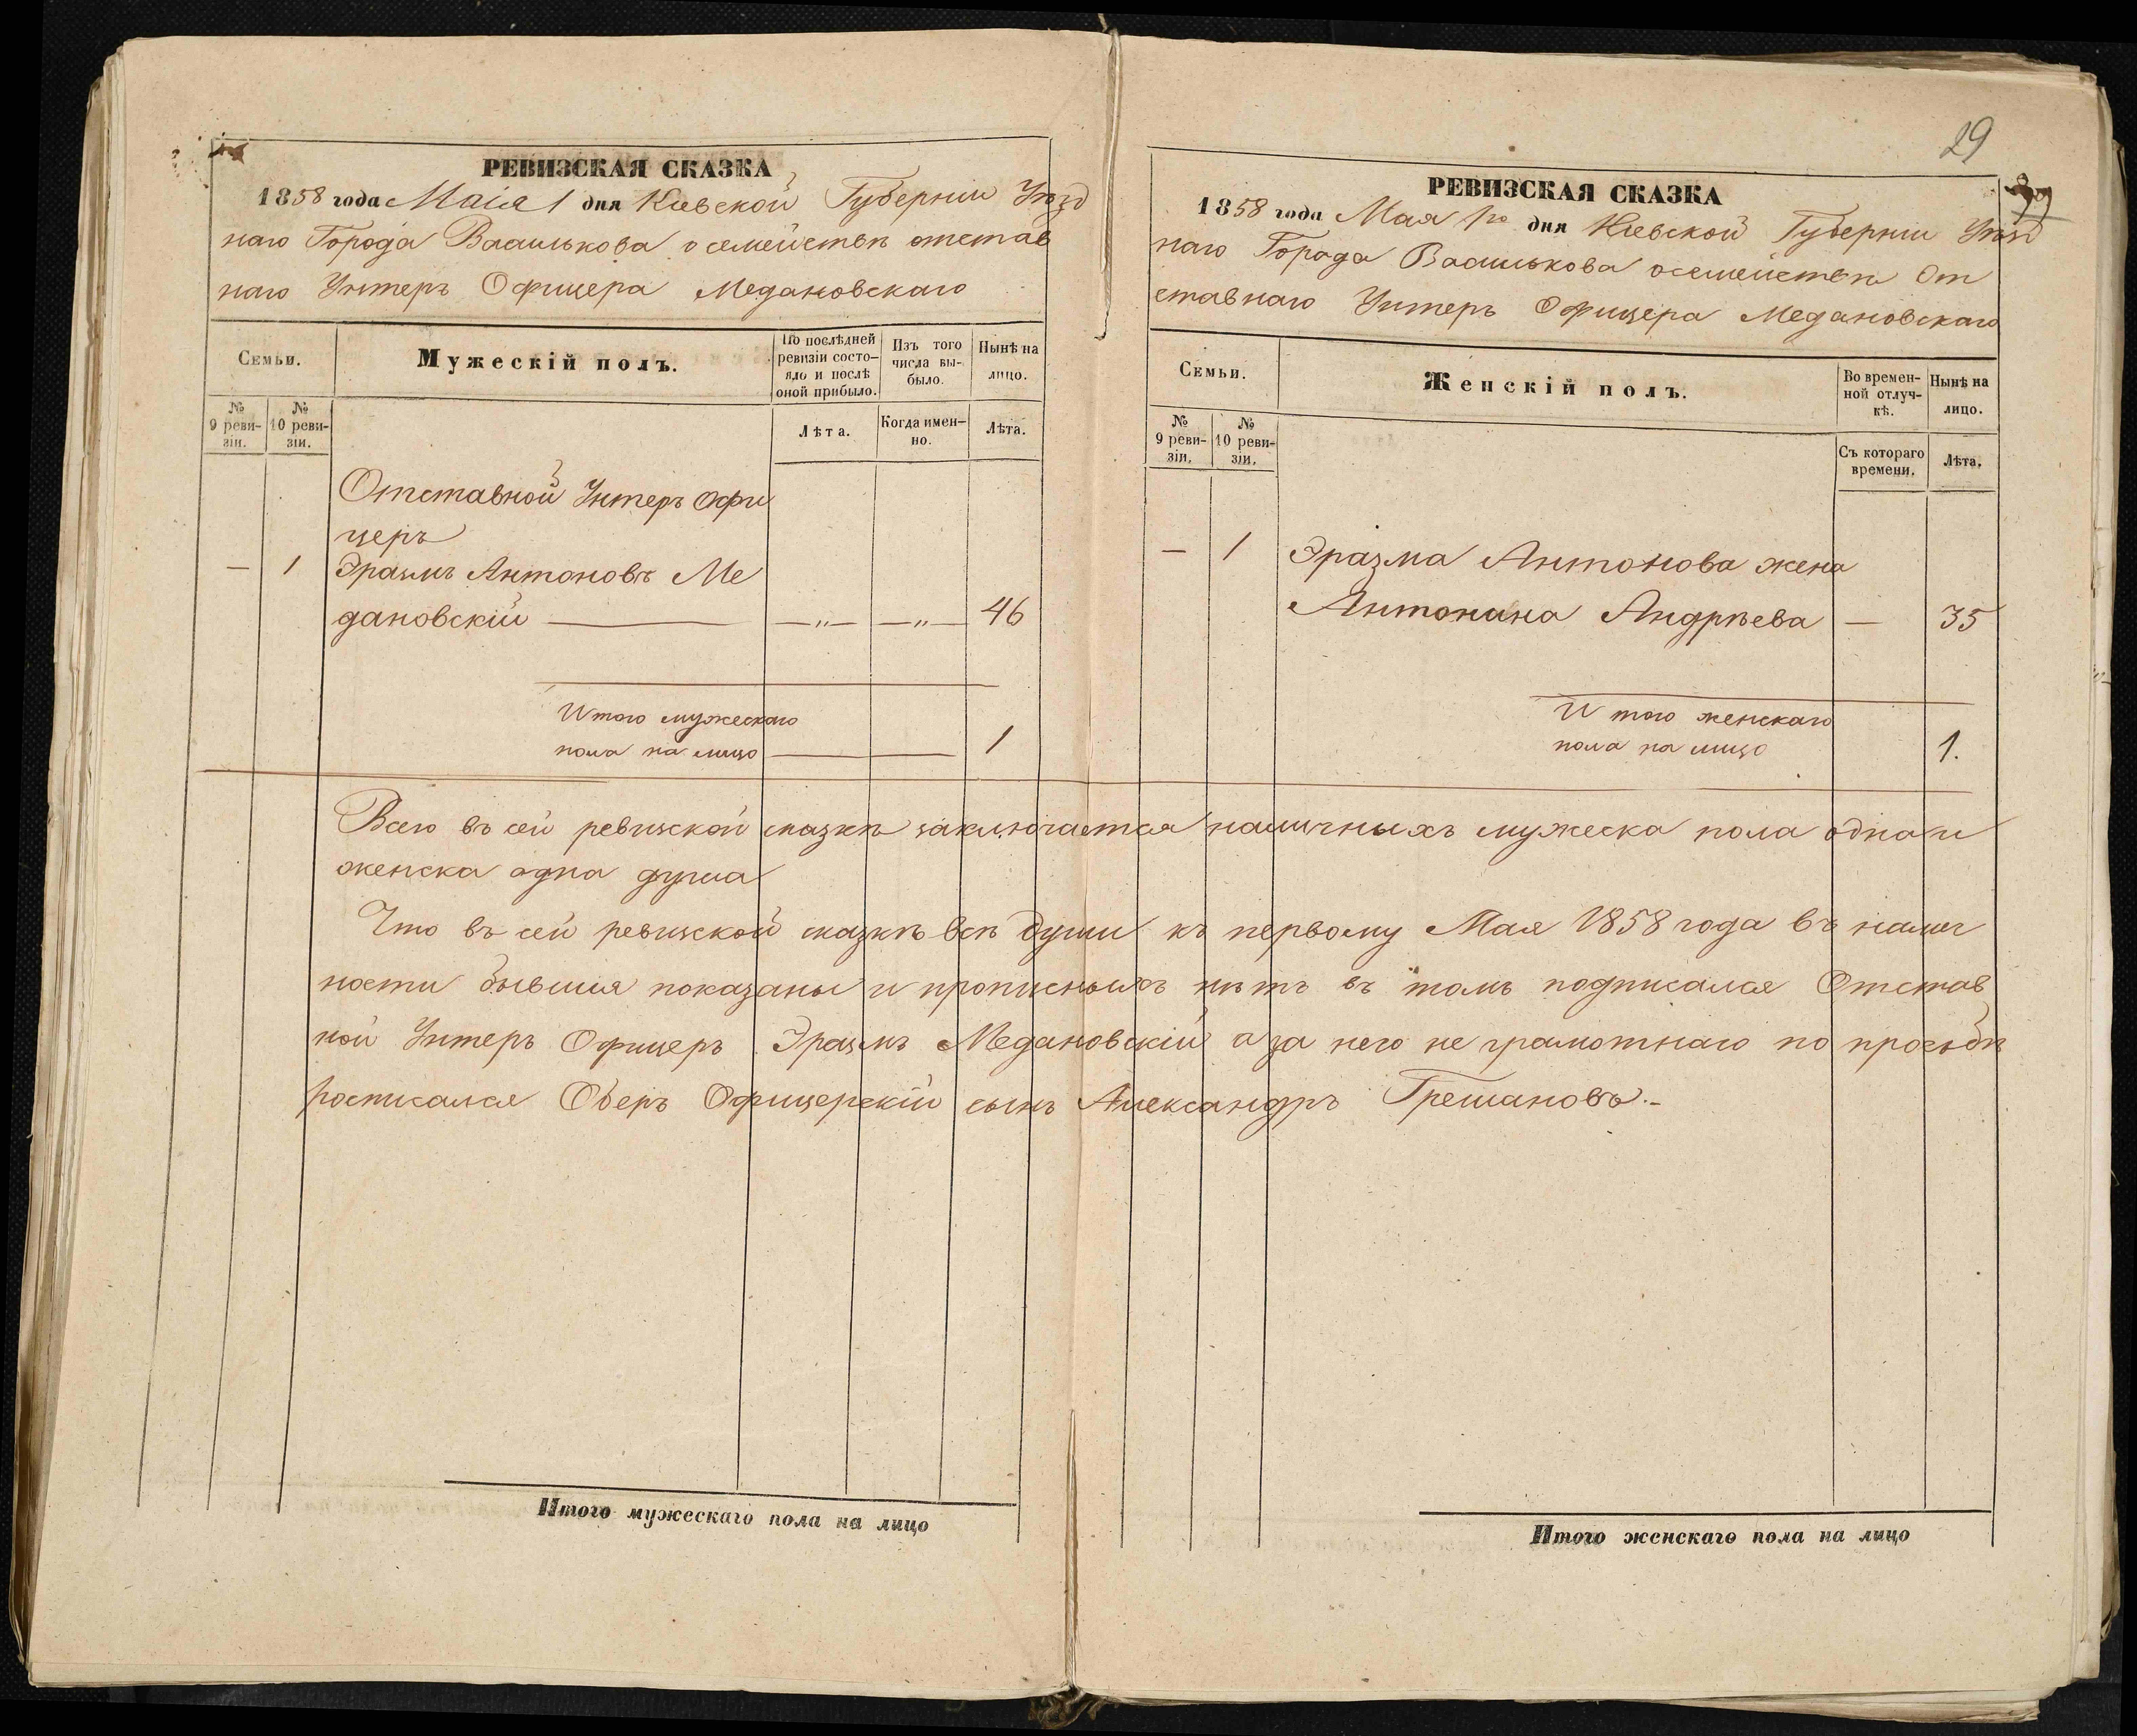 РЕВИЗСКАЯ СКАЗКА
1858 года Маія 1 дня Кіевской Губерніи Уѣзд
наго Города Василькова о семействѣ отстав
наго Унтеръ Офицера Медановскаго
Семьи.
Мужескій полъ.
По послѣдней
ревизіи состо-
яло и послѣ
оной прибыло.
Изъ того
числа вы-
было.
Нынѣ на
лицо.
№
9 реви-
зіи.
№
10 реви-
зіи.
Лѣта.
Когда имен-
но.
Лѣта.
Отставной Унтеръ Офи
церъ
— 1 Эразмъ Антоновъ Ме
дановскій — —„— —„— 46
Итого мужескаго
пола на лицо — — 1
29
РЕВИЗСКАЯ СКАЗКА
1858 года Мая 1го дня Кіевской Губерніи Уѣзд
наго Города Василькова о семействѣ От
ставнаго Унтеръ Офицера Медановскаго
Семьи.
Женскій полъ.
Во времен-
ной отлуч-
кѣ.
Нынѣ на
лицо.
№
9 реви-
зіи.
№
10 реви-
зіи.
Съ котораго
времени.
Лѣта.
— 1 Эразма Антонова жена
Антонина Андрѣева — 35
Итого женскаго
пола на лицо 1.
Всего въ сей ревизской сказкѣ заключается наличныхъ мужеска пола одна и
женска одна душа
Что въ сей ревизской сказкѣ всѣ души къ первому Мая 1858 года въ налич
ности бывшія показаны и прописныхъ нѣтъ въ томъ подписался Отстав
ной Унтеръ Офицеръ Эразмъ Медановскій а за него не грамотнаго по прозьбѣ
росписался Оберъ Офицерскій сынъ Александръ Грешановъ.-
Итого мужескаго пола на лицо
Итого женскаго пола на лицо